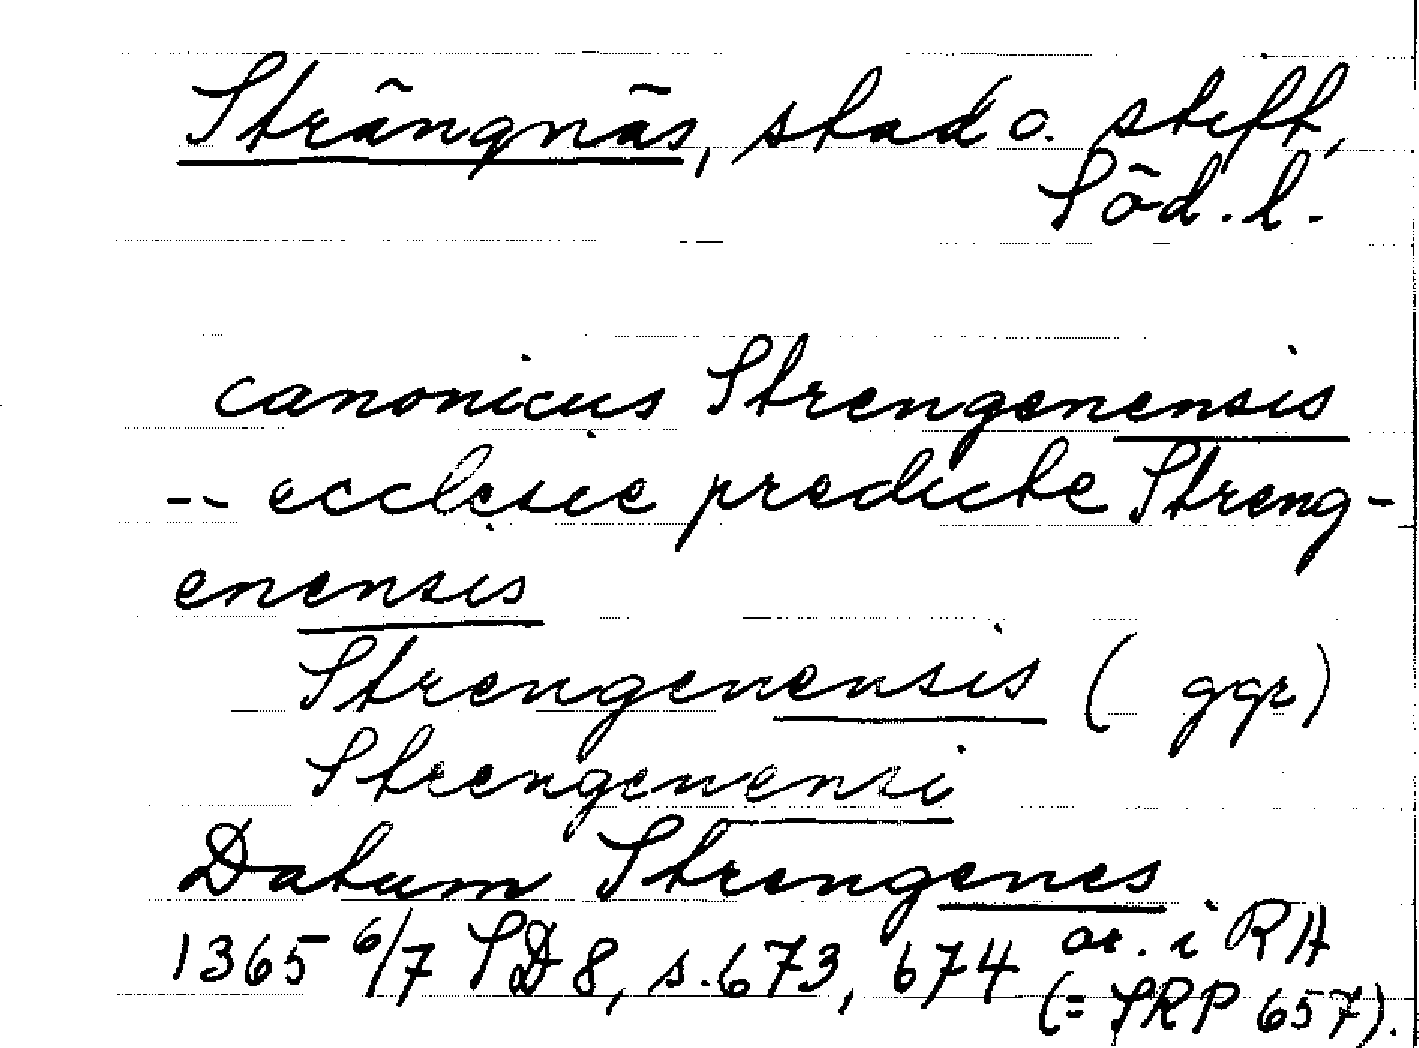 Strängnäs, stad o. stift,
Söd. l.
canonicus Strengenensis
-- ecclesie predicte Streng-
enensis
Strengenensis (ggr)
Strengenensi
Datum Strengenes
1365 6/7 SD 8, s. 673, 674 or. i RA
(= SRP 657).